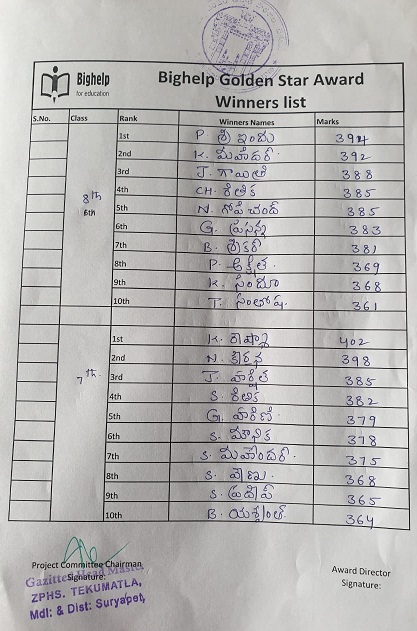 Bighelp
for education
Bighelp Golden Star Award
Winners list
S.No. Class Rank Winners Names Marks
8th
6th
1st P. శ్రీ ఇందు 394
2nd K. మహేందర్ 392
3rd J. గాయత్రి 388
4th CH. శీతిక 385
5th N. గోపి చంద్ 385
6th G. ప్రసన్న 383
7th B. శ్రీకర్ 381
8th P. అక్షిత 369
9th K. సింధూ 368
10th T. సంతోష్ 361
7th
1st K. 402
2nd N. కీర్తన 398
3rd J. హర్షిత 385
4th S. శీతిక 382
5th G. హారిణి 379
6th S. మౌనిక 378
7th S. మహేందర్ 375
8th S. వేణు 368
9th S. ప్రదీప్ 365
10th B. యశ్వంత్ 364
Project Committee Chairman
Signature:
Gazitted Head Master
ZPHS. TEKUMATLA,
Mdl: & Dist: Suryapet,
Award Director
Signature: